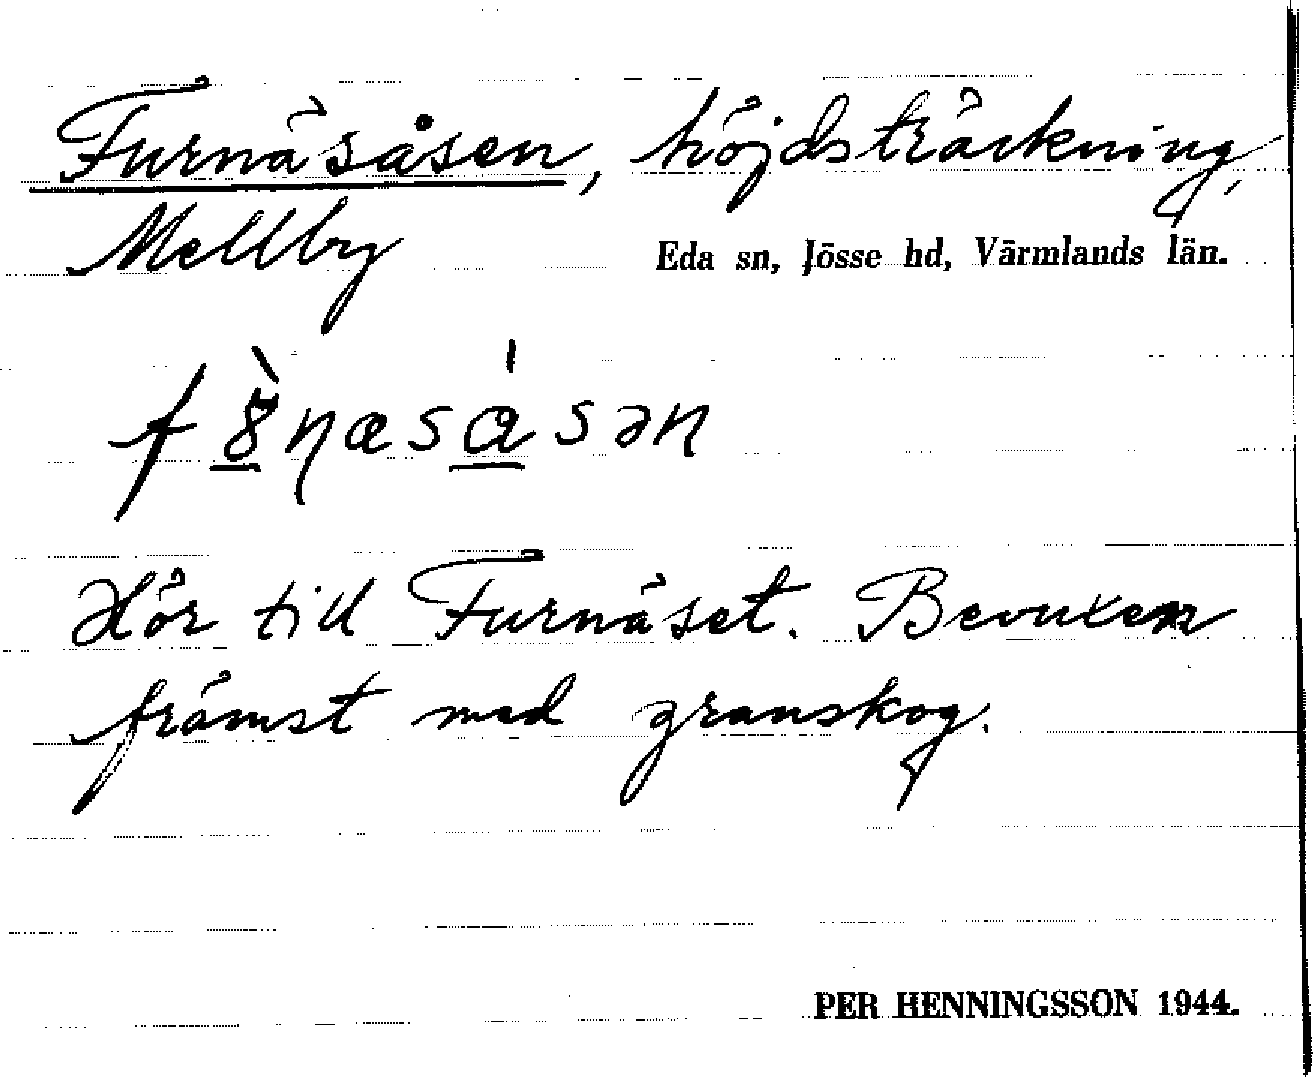 Furnäsåsen, höjdsträckning,
Mellby Eda sn, Jösse hd, Värmlands län.
Hör till Furnäset. Bevuxen
främst med granskog.
PER HENNINGSSON 1944.